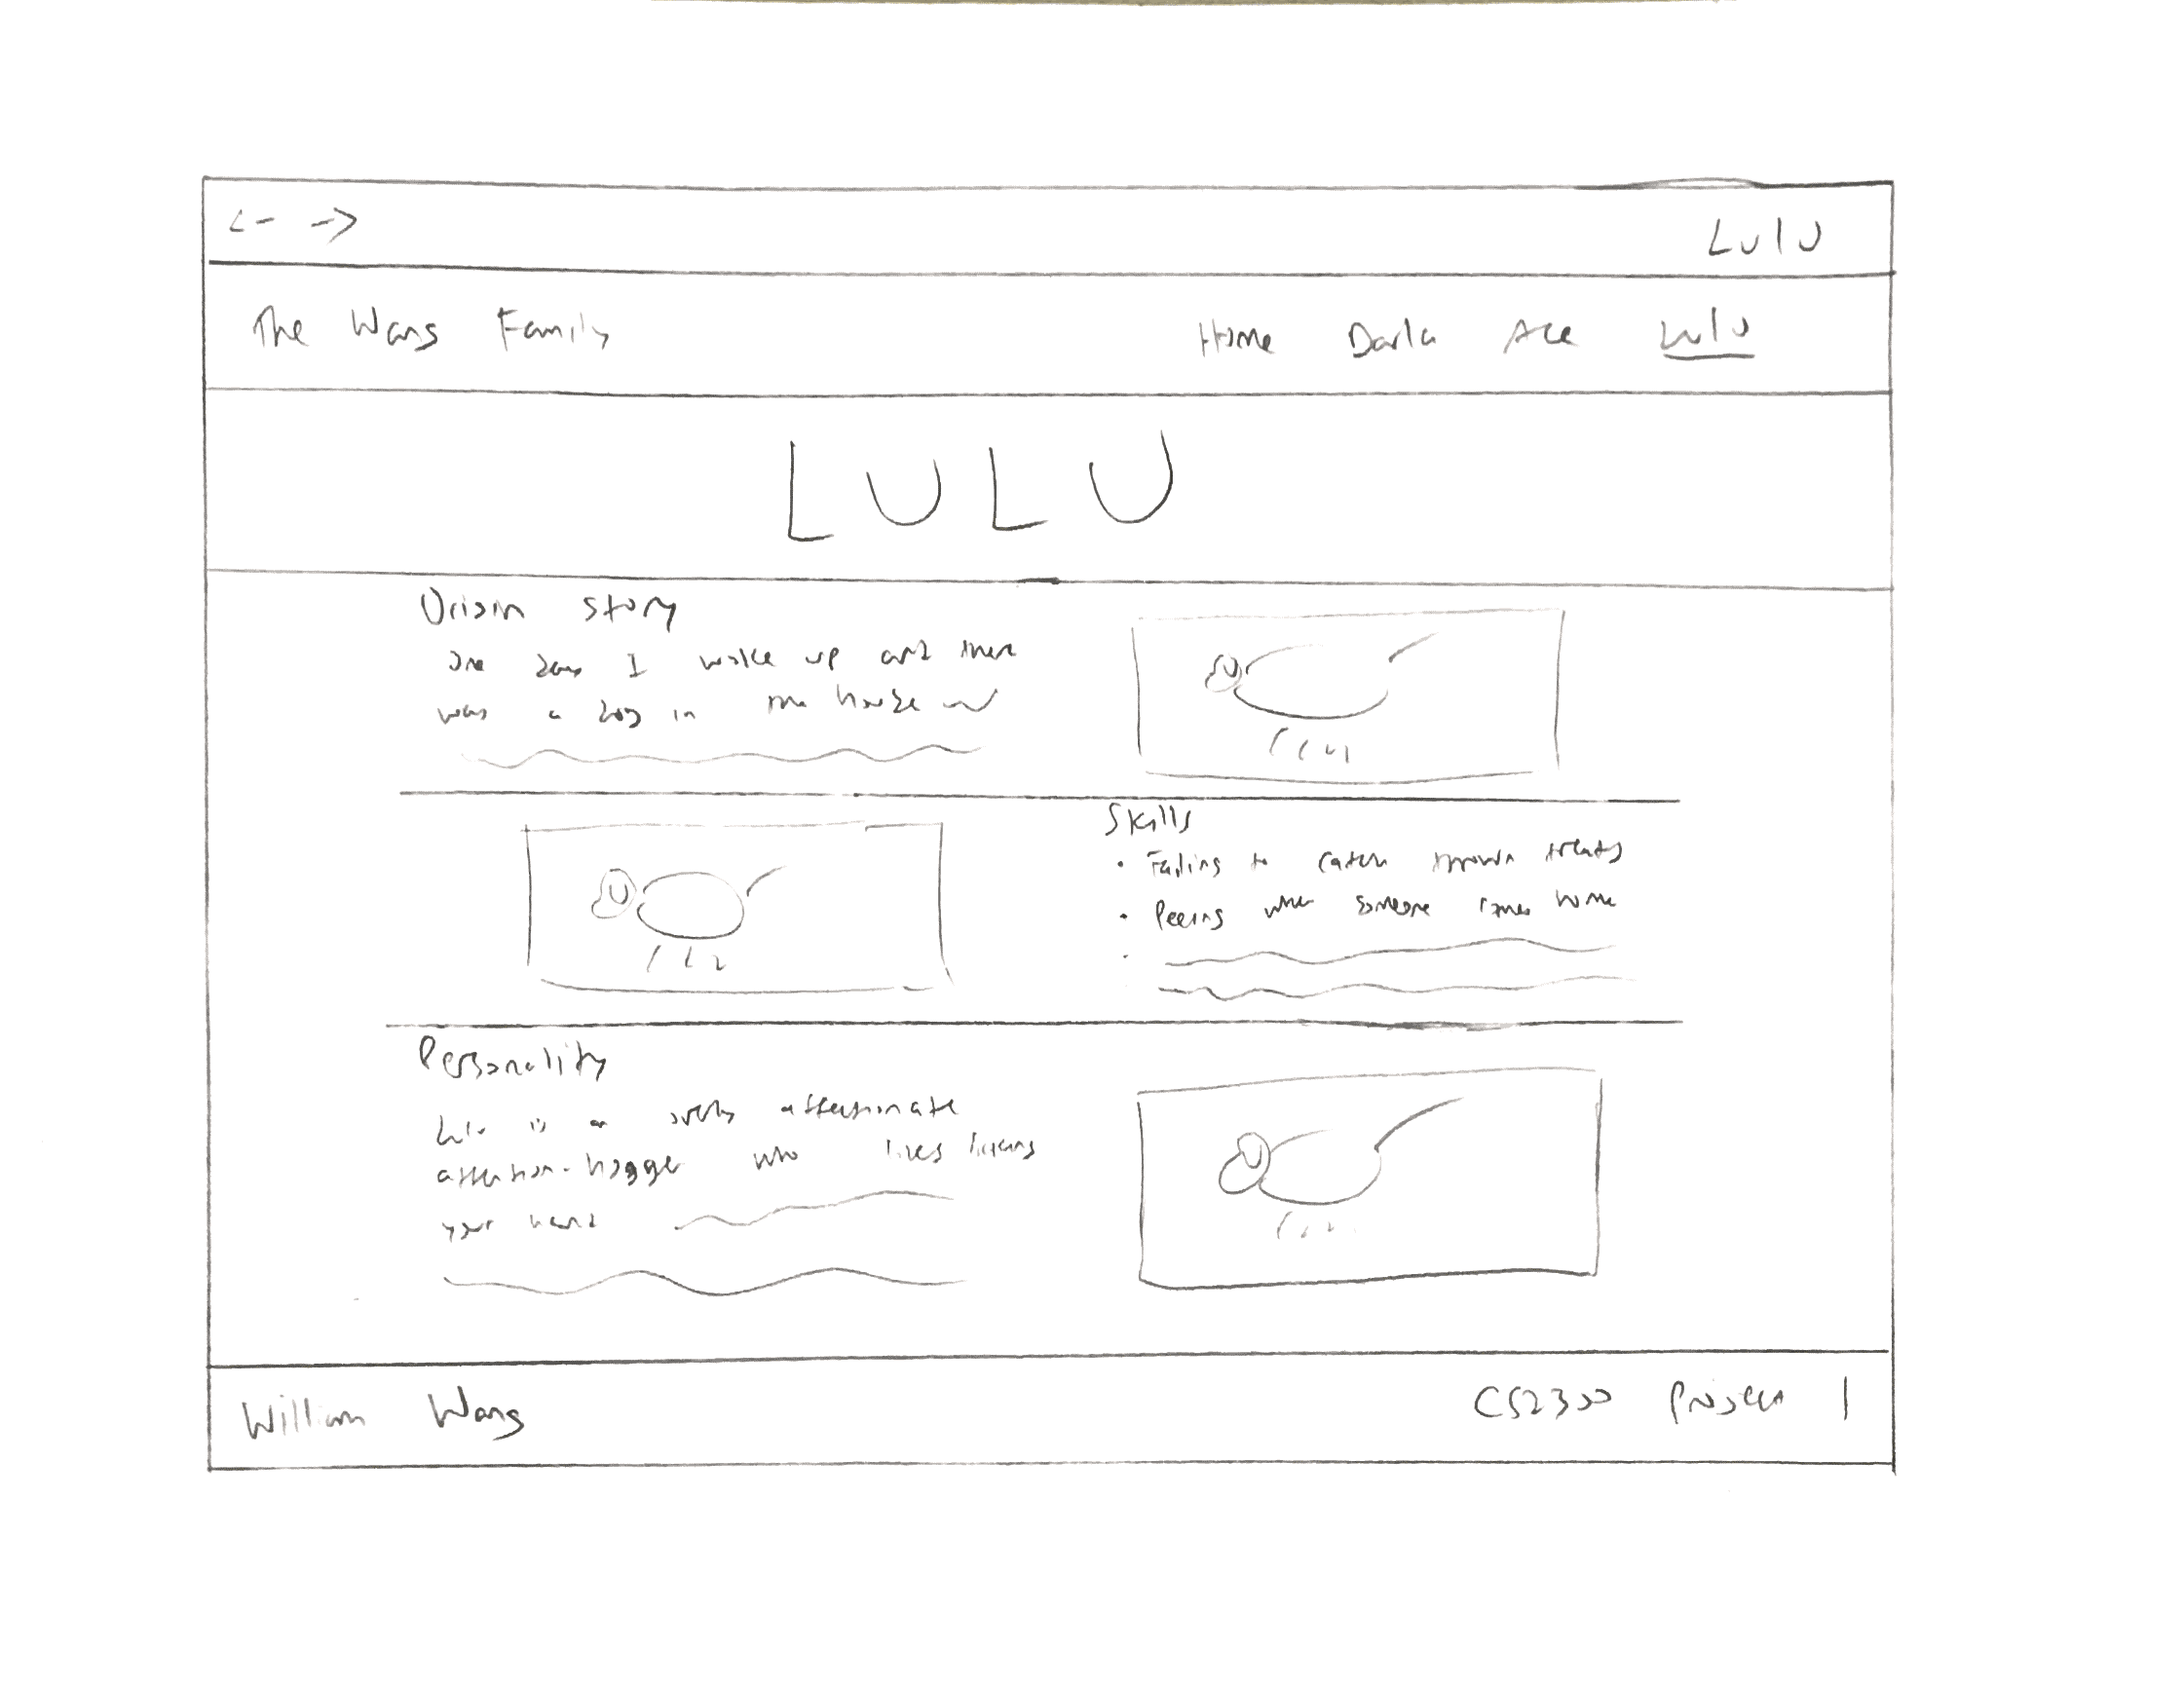 <- -> Lulu
The Wang Family Home Darla Ace Lulu
LULU
Origin story
One day I woke up and there
was a dog in the house
Skills
• Failing to catch thrown treats
• Peeing when someone comes home
Personality
Lulu is an overly affectionate
attention-hogger who likes licking
your hand
William Wang CS2300 Project 1